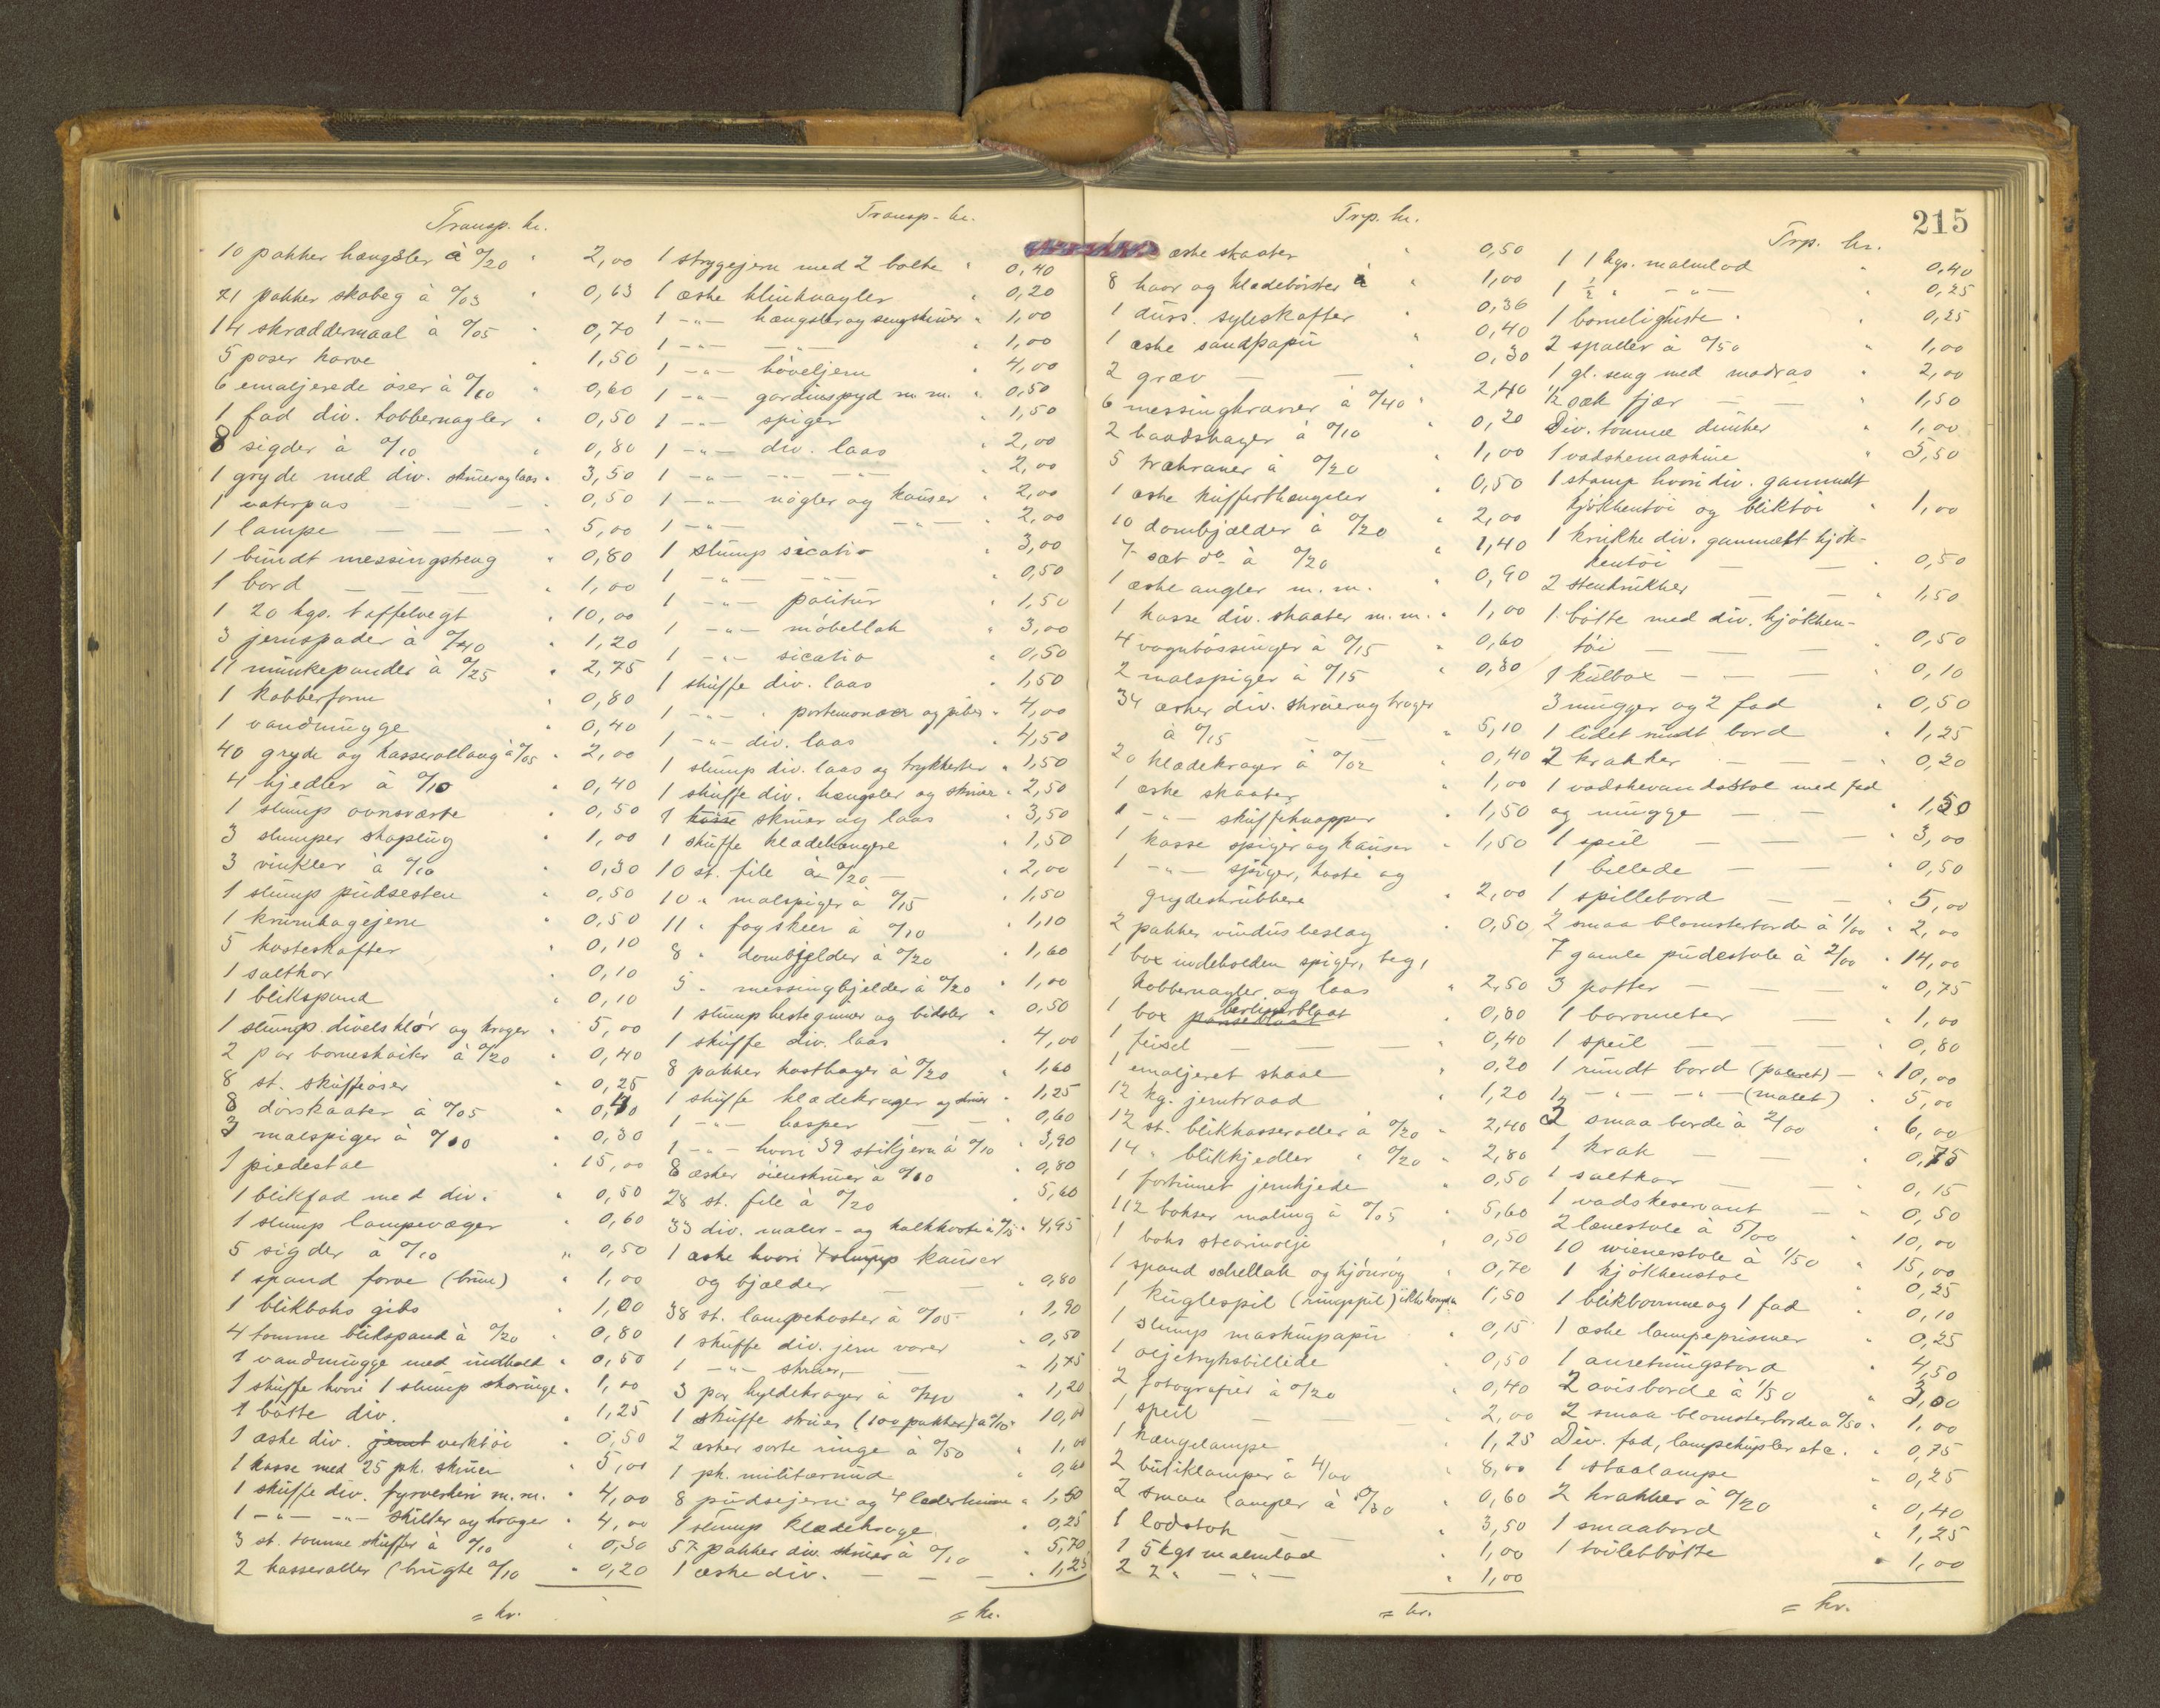 Transp. kr.
10 pakker hængsler à 0/20 " 2,00
21 pakker skobeg à 0/03 " 0,63
14 skræddermaal à 0/05 " 0,70
5 poser harve " 1,50
6 emaljerede öser à 0/10 " 0,60
1 fad div. kobbernagler " 0,50
8 sigder à 0/10 " 0,80
1 gryde med div. skruer og laas " 3,50
1 vaterpas — — — " 0,50
1 lampe — — — " 5,00
1 bundt messingstreng " 0,80
1 bord — — — " 1,00
1 20 kgs. taffelvegt " 10,00
3 jernspader à 0/40 " 1,20
11 munkepander à 0/25 " 2,75
1 kobberform " 0,80
1 vandmugge " 0,40
40 gryde og kasserollaag à 0/05 " 2,00
4 kjedler à 0/10 " 0,40
1 slump ovnsværte " 0,50
3 slumper skopling " 1,00
3 vinkler à 0/10 " 0,30
1 slump pudsesten " 0,50
1 krumhagejern " 0,50
5 kosteskafter " 0,10
1 saltkar " 0,10
1 blikspand " 0,10
1 slump divels klör og kroger " 5,00
2 par borneskoiter à 0/20 " 0,40
8 st. skuffeöser " 0,25
8 dörskaater à 0/05 " 0,40
3 malspiger à 0/10 " 0,30
1 piedestal " 15,00
1 blikfad med div. " 0,50
1 slump lampevæger " 0,60
5 sigder à 0/10 " 0,50
1 spand farve (brun) " 1,00
1 blikboks gibs " 1,00
4 tomme blikspand à 0/20 " 0,80
1 vandmugge med indhold " 0,50
1 skuffe hvori 1 slump skoringe " 1,00
1 bötte div. " 1,25
1 æske div. jernt verktöi " 0,50
1 kasse med 25 pk. skruer " 5,00
1 skuffe div. fyrverkeri m.m. " 4,00
1 — " — — " — skilter og kroger " 4,00
3 st. tomme skuffer à 0/10 " 0,30
2 kasseroller (brugte 0/10 " 0,20
= kr.
Transp. kr.
1 strygejern med 2 bolte " 0,40
1 æske klinknagler " 0,20
1 — " — hængsler og sengskruer " 1,00
1 — " — — " — " 1,00
1 — " — höveljern " 4,00
1 — " — gardinspyd m.m. " 0,50
1 — " — spiger " 1,50
1 — " — div. laas " 2,00
1 — " — — — " 2,00
1 — " — nögler og kauser " 2,00
1 — " — — " — " 2,00
1 slump sicativ " 3,00
1 — " — — " — " 0,50
1 — " — politur " 1,50
1 — " — möbellak " 3,00
1 — " — sicativ " 0,50
1 skuffe div. laas " 1,50
1 — " — " portemonær og piber " 4,00
1 — " — div. laas " 4,50
1 slump div. laas og trykkerter " 1,50
1 skuffe div. hængsler og skruer " 2,50
1 kasse skruer og laas " 3,50
1 skuffe klædehængere " 1,50
10 st. file à 0/20 — " 2,00
10 " malspiger à 0/15 " 1,50
11 " fogskeer à 0/10 " 1,10
8 " dombjelder à 0/20 " 1,60
5 " messingbjelder à 0/20 " 1,00
1 slump hestegruer og bidsler " 0,50
1 skuffe div. laas " 4,00
8 pakker hasthager à 0/20 " 1,60
1 skuffe klædekroger og skruer " 1,25
1 — " — hasper — — " 0,60
1 — " — hvori 39 stikjern à 0/10 " 3,90
8 æsker öienskruer à 0/10 " 0,80
28 st. file à 0/20 " 5,60
33 div. maler- og kalkkoste à 0/15 " 4,95
1 æske hvori 1 slump kauser
og bjælder — — " 0,80
38 st. lampekoster à 0/05 " 1,90
1 skuffe div. jern varer " 0,50
1 — " — skruer, — " 1,75
3 par hyldekroger à 0/40 " 1,20
1 skuffe skruer (100 pakker) à 0/10 " 10,00
2 æsker sorte ringe à 0/50 " 1,00
1 pk. militærmud " 0,60
8 pudsejern og 4 læderhuner " 1,50
1 slump klædekroge " 0,25
57 pakker div. skruer à 0/10 " 5,70
1 æske div. — — — " 1,25
= kr.
Trp. kr.
æske skaater " 0,50
8 haar og klædebörster à " 1,00
1 dus. syleskafter " 0,36
1 æske sandpapir " 0,40
2 græv — — " 0,30
6 messingkraner à 0/40 " 2,40
2 baadshager à 0/10 " 0,20
5 trækraner à 0/20 " 1,00
1 æske kufferthængsler " 0,50
10 dombjælder à 0/20 " 2,00
7 sæt do à 0/20 " 1,40
1 æske angler m.m. " 0,90
1 kasse div. skaater m.m. " 1,00
4 vognbössinger à 0/15 " 0,60
2 malspiger à 0/15 " 0,30
34 æsker div. skruer og kroger
à 0/15 — — " 5,10
20 klædekroger à 0/02 " 0,40
1 æske skaater " 1,00
1 — " — skuffeknapper " 1,50
1 kasse spiger og kauser " 1,50
1 — " — spiger, koste og
grydeskrubbere " 2,00
2 pakker vindusbeslag " 0,50
1 box indeholden spiger, beg,
kobbernagler og laas " 2,50
1 box pariserblaat berlinerblaat " 0,80
1 feisel — — — " 0,40
1 emaljeret skaal " 0,20
12 kg. jerntraad " 1,20
12 st. blikkasseroller à 0/20 " 2,40
14 " blikkjedler " 0/20 " 2,80
1 fortinnet jernkjede " 0,50
112 bokser maling à 0/05 " 5,60
1 boks stearinolje " 0,50
1 spand schellak og kjönrög " 0,70
1 kuglespil (ringspil) ikke komplet 1,50
1 slump maskinpapir " 0,15
1 oljetryksbillede " 0,50
2 fotografier à 0/20 " 0,40
1 speil — — 2,00
1 hængelampe " 1,25
2 butiklamper à 4/00 " 8,00
2 smaa lamper à 0/30 " 0,60
1 lodstok — — " 3,50
1 5 kgs malmlod " 1,00
2 2 " — " — " 1,00
= kr.
215
Trp. kr.
1 1 kgs. malmlod " 0,40
1 ½ " — " — " 0,25
1 borneligkiste " " 0,25
2 spatler à 0/50 " 1,00
1 gl. seng med madras " 2,00
½ sæk fjær — — " 1,50
Div. tomme dunker " 1,00
1 vadskemaskine " 5,50
1 stamp hvori div. gammelt
kjökkentöi og bliktöi " 1,00
1 krukke div. gammelt kjök-
kentöi — — " 0,50
2 stenkrukker — — " 1,50
1 bötte med div. kjökken-
töi — — — " 0,50
1 kulbox — — — " 0,10
3 mugger og 2 fad " 0,50
1 lidet rundt bord " 1,25
2 krakker — — — " 0,20
1 vadskevandsstol med fad
og mugge — — " 1,50
1 speil — — — " 3,00
1 billede — — " 0,50
1 spillebord — — " 5,00
2 smaa blomsterborde à 1/00 " 2,00
7 gamle pudestole à 2/00 " 14,00
3 potter — — — " 0,75
1 barometer — " 1,00
1 speil — — — " 0,80
1 rundt bord (poleret) — " 10,00
1 — " — — " — (malet) " 5,00
3 smaa borde à 2/00 " 6,00
1 krak — — " 0,75
1 saltkar — — " 0,15
1 vadskeservant — " 0,50
2 lænestole à 5/00 " 10,00
10 wienerstole à 1/50 " 15,00
1 kjökkenstol " 0,25
1 blikbomme og 1 fad " 0,10
1 æske lampeprismer " 0,25
1 anretningsbord " 4,50
2 avisborde à 1/50 " 3,00
2 smaa blomsterborde à 0/50 " 1,00
Div. fad, lampekupler etc. " 0,75
1 staalampe " 0,25
2 krakker à 0/20 " 0,40
1 smaabord " 1,25
1 toiletbötte " 1,00
= kr.